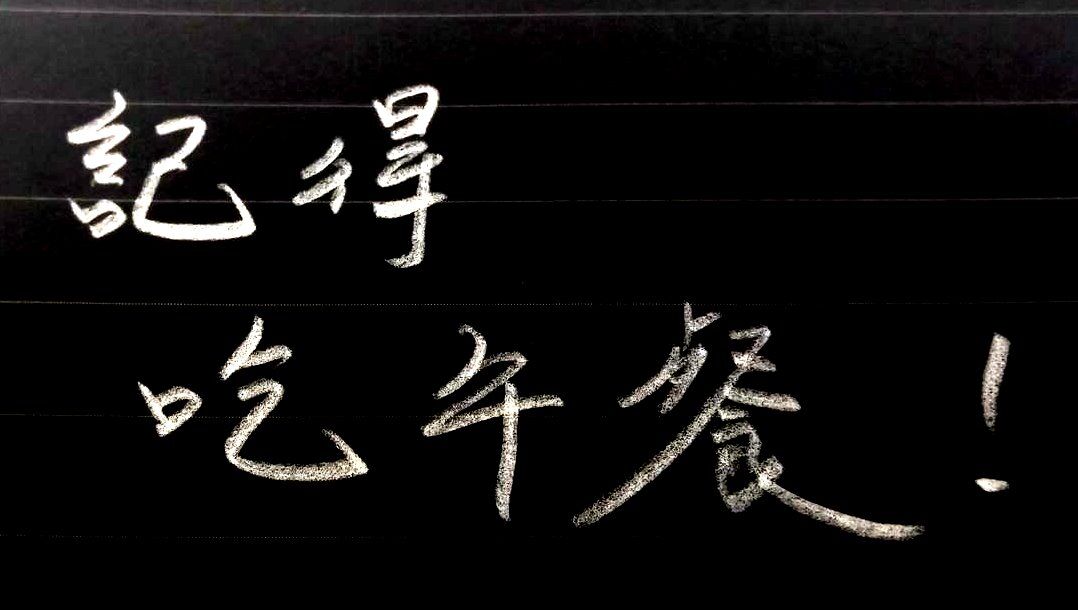 記得
吃午餐!